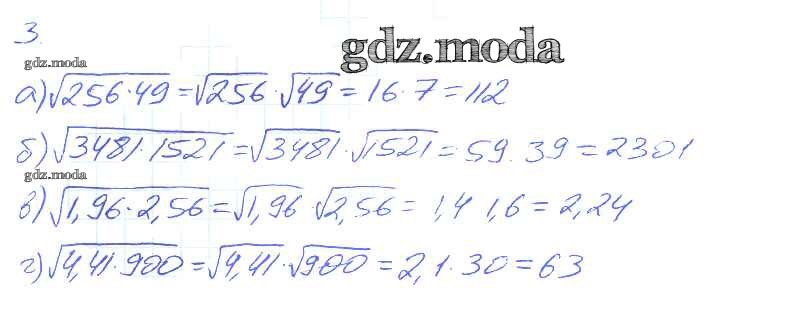 3.
gdz.moda
gdz.moda
а) √256·49 = √256 · √49 = 16·7 = 112
б) √3481·1521 = √3481 · √1521 = 59·39 = 2301
gdz.moda
в) √1,96·2,56 = √1,96 √2,56 = 1,4 1,6 = 2,24
г) √4,41·900 = √4,41 · √900 = 2,1·30 = 63